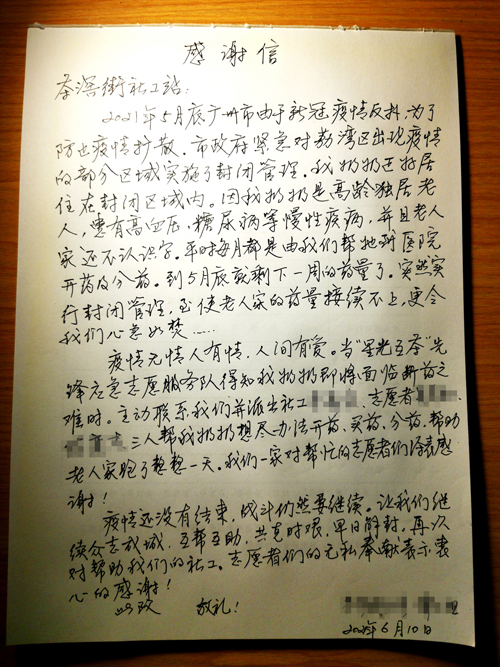 感谢信
茶滘街社工站：
2021年5月底广州市由于新冠疫情反抖，为了
防止疫情扩散，市政府紧急对荔湾区出现疫情
的部分区域实施了封闭管理。我奶奶正好居
住在封闭区域内。因我奶奶是高龄独居老
人，患有高血压、糖尿病等慢性疾病，并且老人
家还不认识字。平时每月都是由我们帮她到医院
开药及分药。到5月底就剩下一周的药量了。突然实
行封闭管理，至使老人家的药量接续不上，更令
我们心急如焚……
疫情无情人有情，人间有爱。当“星光互荟”先
锋应急志愿服务队得知我奶奶即将面临断药之
难时。主动联系我们并派出社工 、志愿者
三人帮我奶奶想尽办法开药、买药、分药。帮助
老人家跑了整整一天。我们一家对帮忙的志愿者们深表感
谢！
疫情还没有结束，战斗仍然要继续。让我们继
续众志成城，互帮互助，共克时艰，早日解封，再次
对帮助我们的社工。志愿者们的无私奉献表示衷
心的感谢！
此致 敬礼！
2021年6月10日